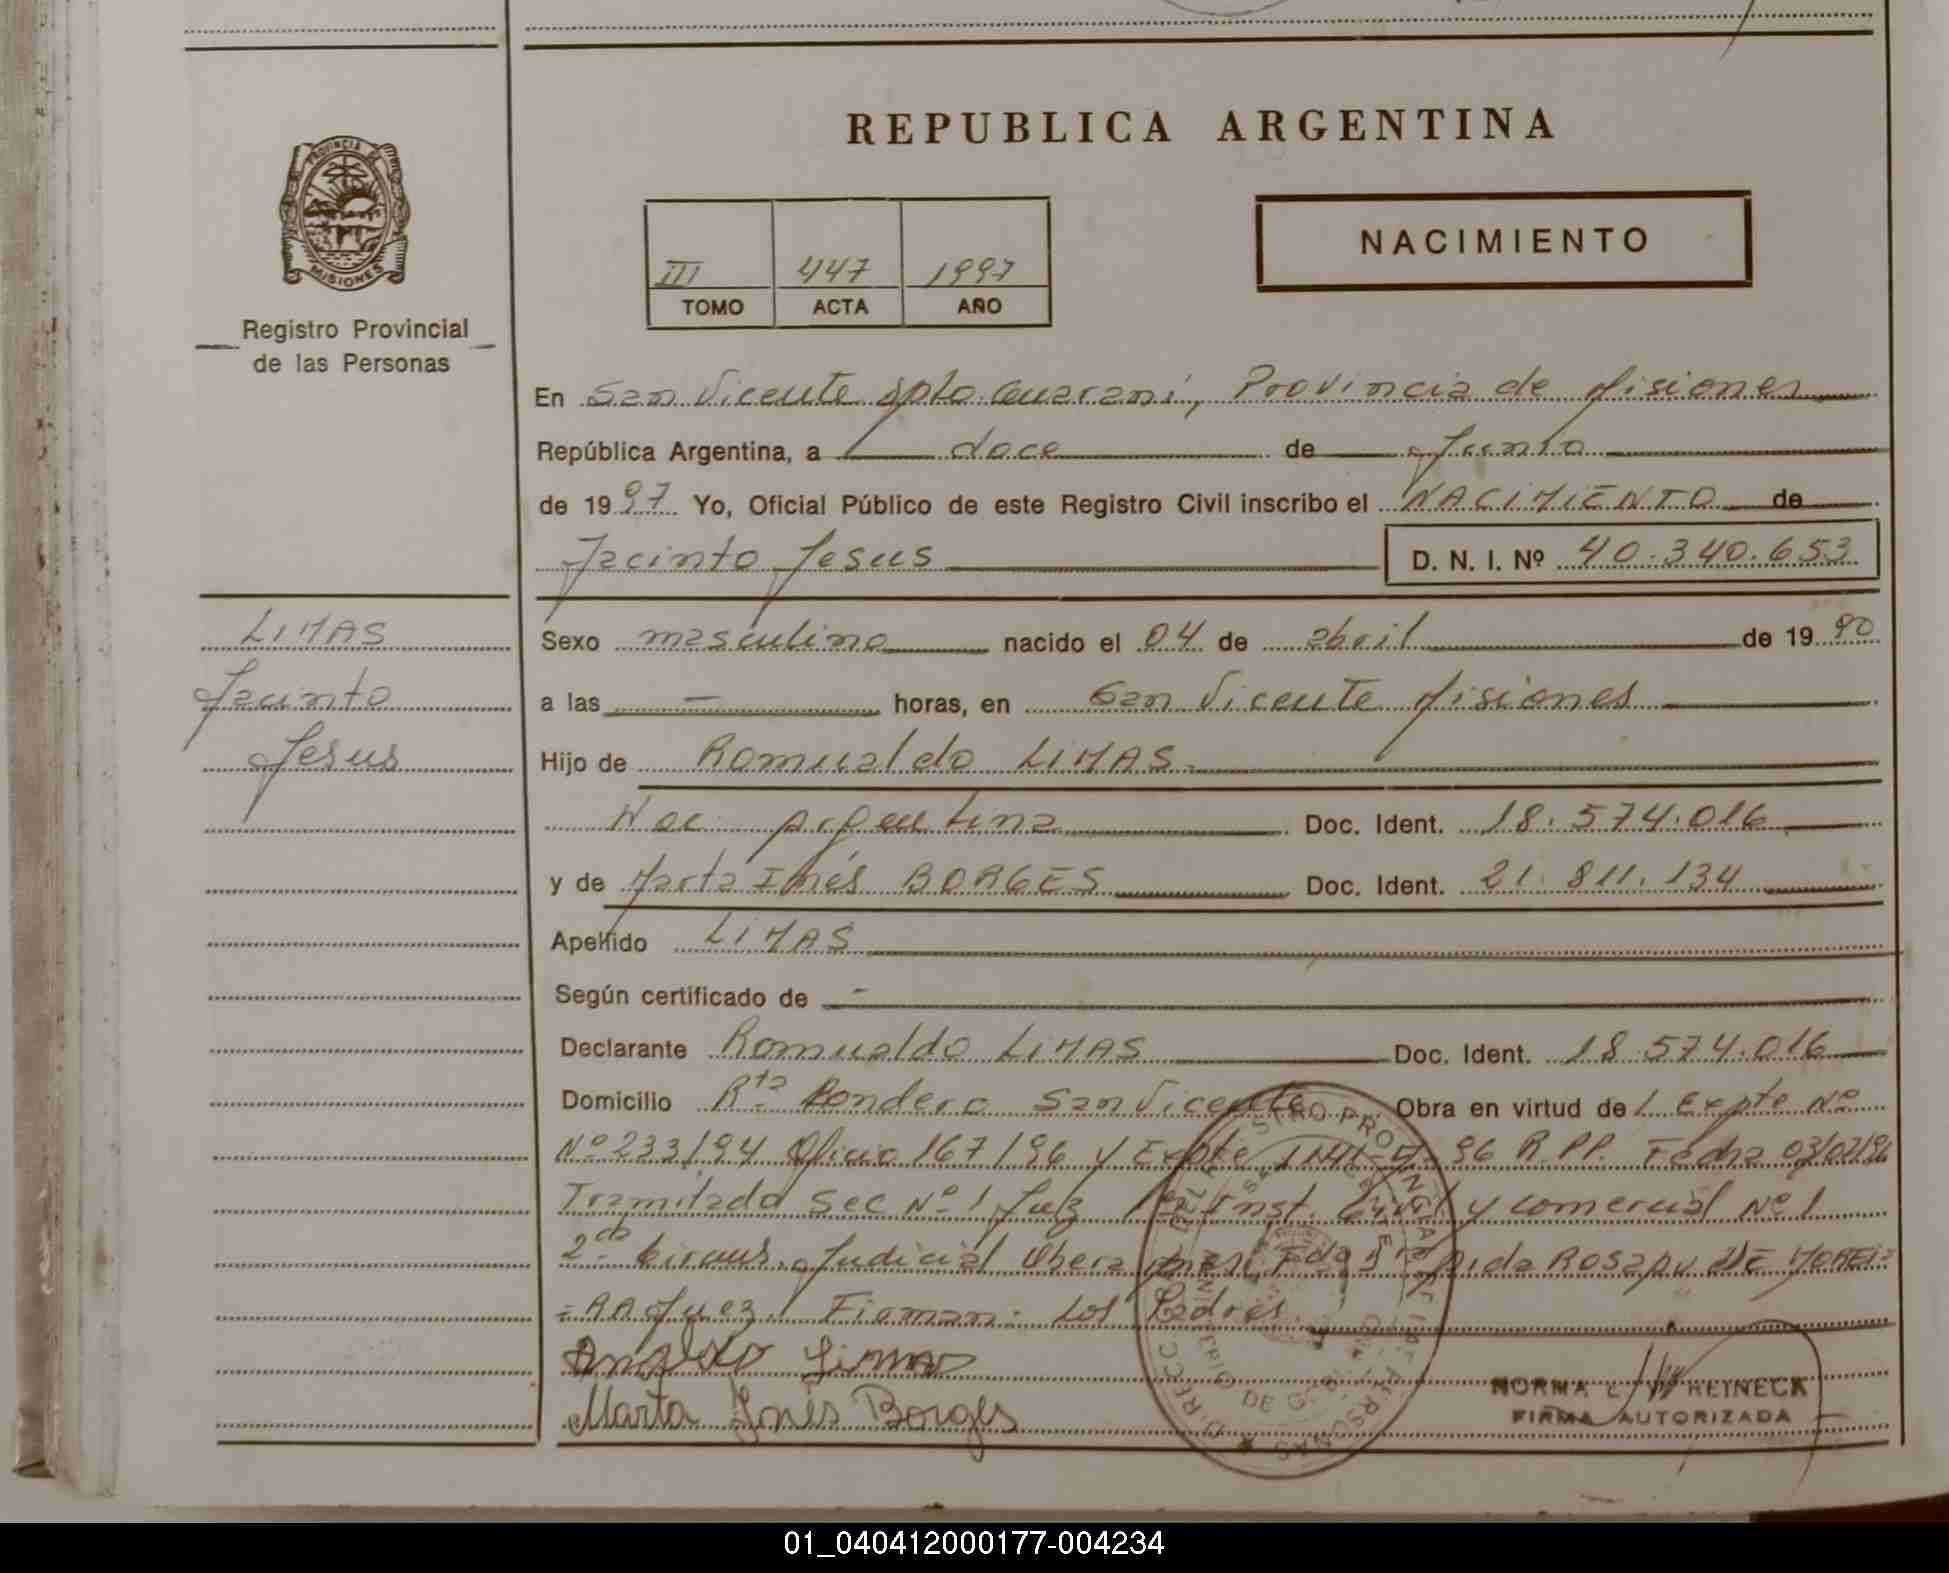 REPUBLICA ARGENTINA
PROVINCIA DE
MISIONES
Registro Provincial
de las Personas
III 447 1997
TOMO ACTA AÑO
NACIMIENTO
En San Vicente Dpto Guaraní, Provincia de Misiones
República Argentina, a doce de Junio
de 1997 Yo, Oficial Público de este Registro Civil inscribo el NACIMIENTO de
Jacinto Jesus D. N. I. Nº 40.340.653
LIMAS
Jacinto
Jesus
Sexo masculino nacido el 04 de abril de 1990
a las - horas, en San Vicente Misiones
Hijo de Romualdo LIMAS
Nac argentina Doc. Ident. 18.574.016
y de Marta Inés BORGES Doc. Ident. 21.811.134
Apellido LIMAS
Según certificado de -
Declarante Romualdo LIMAS Doc. Ident. 18.574.016
Domicilio Rta Rondero San Vicente Obra en virtud de 1 Expte Nº
Nº 233/94 Oficio 167/96 y Expte 96 R.PP. Fecha
Tramitada Sec Nº 1 Juz 1ra Inst. Civil y comercial Nº 1
2da Circuns. Judicial Obera Fdo ROSA DE
Juez. Firman: Los Padres
Marta Inés Borges
NORMA REYNECK
FIRMA AUTORIZADA
01_040412000177-004234